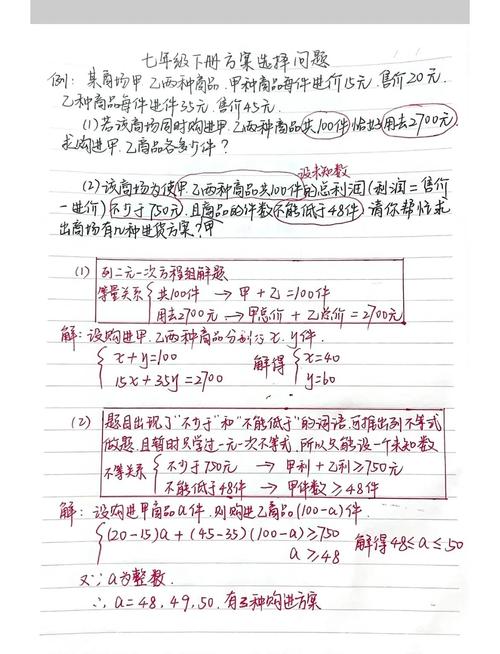 七年级下册方案选择问题
例：某商场甲、乙两种商品、甲种商品每件进价15元、售价20元、
乙种商品每件进件35元、售价45元.
(1)若该商场同时购进甲、乙两种商品共100件恰好用去2700元,
求购进甲、乙商品各多少件？
设未知数
(2)该商场为使甲、乙两种商品共100件的总利润(利润=售价
-进价)不少于750元,且商品的件数不能低于48件,请你帮忙求
出商场有几种进货方案？甲
(1) 列二元一次方程组解题
等量关系 { 共100件 → 甲+乙=100件
用去2700元 → 甲总价+乙总价=2700元
解：设购进甲、乙两种商品分别为x、y件.
{ x+y=100 解得 { x=40
15x+35y=2700 y=60
(2) 题目出现了"不少于"和"不能低于"的词语,可推出列不等式
做题,且暂时只学过一元一次不等式,所以只能设一个未知数
不等关系 { 不少于750元 → 甲利+乙利≥750元
不能低于48件 → 甲件数≥48件
解：设购进甲商品a件,则购进乙商品(100-a)件.
{ (20-15)a+(45-35)(100-a)≥750 解得48≤a≤50
a≥48
又∵a为整数.
∴a=48,49,50.有三种购进方案